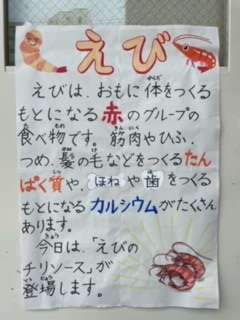 えび
えびは、おもに体をつくる
もとになる赤のグループの
食べ物です。筋肉やひふ、
つめ、髪の毛などをつくるたん
ぱく質や、ほねや歯をつくる
もとになるカルシウムがたくさん
あります。
今日は、「えびの
チリソース」が
登場します。